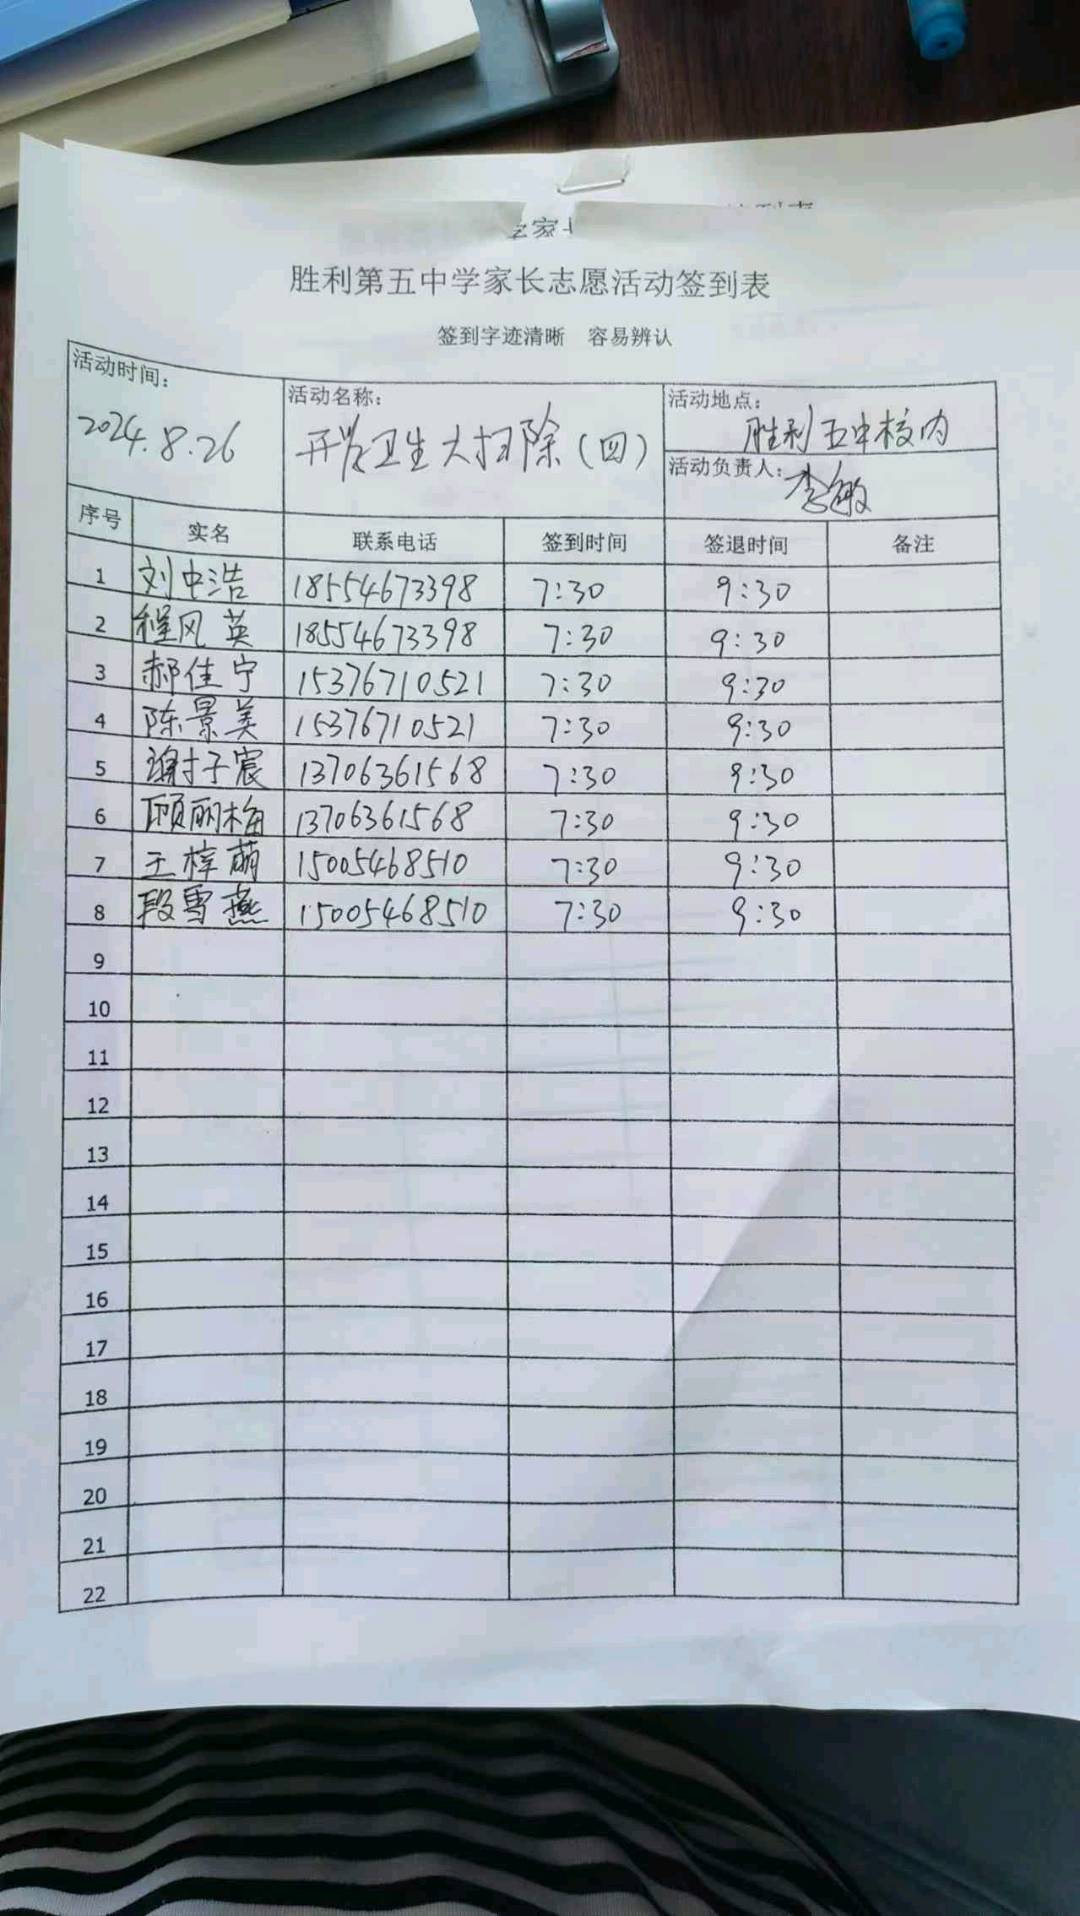 胜利第五中学家长志愿活动签到表
签到字迹清晰 容易辨认
活动时间: 活动名称: 活动地点:
2024.8.26 开学卫生大扫除(四) 胜利五中校内
活动负责人: 李敏
序号 实名 联系电话 签到时间 签退时间 备注
1 刘中浩 18554673398 7:30 9:30
2 程风英 18554673398 7:30 9:30
3 郝佳宁 15376710521 7:30 9:30
4 陈景美 15376710521 7:30 9:30
5 谢子宸 13706361568 7:30 9:30
6 顾丽梅 13706361568 7:30 9:30
7 王梓萌 15005468510 7:30 9:30
8 段雪燕 15005468510 7:30 9:30
9
10
11
12
13
14
15
16
17
18
19
20
21
22